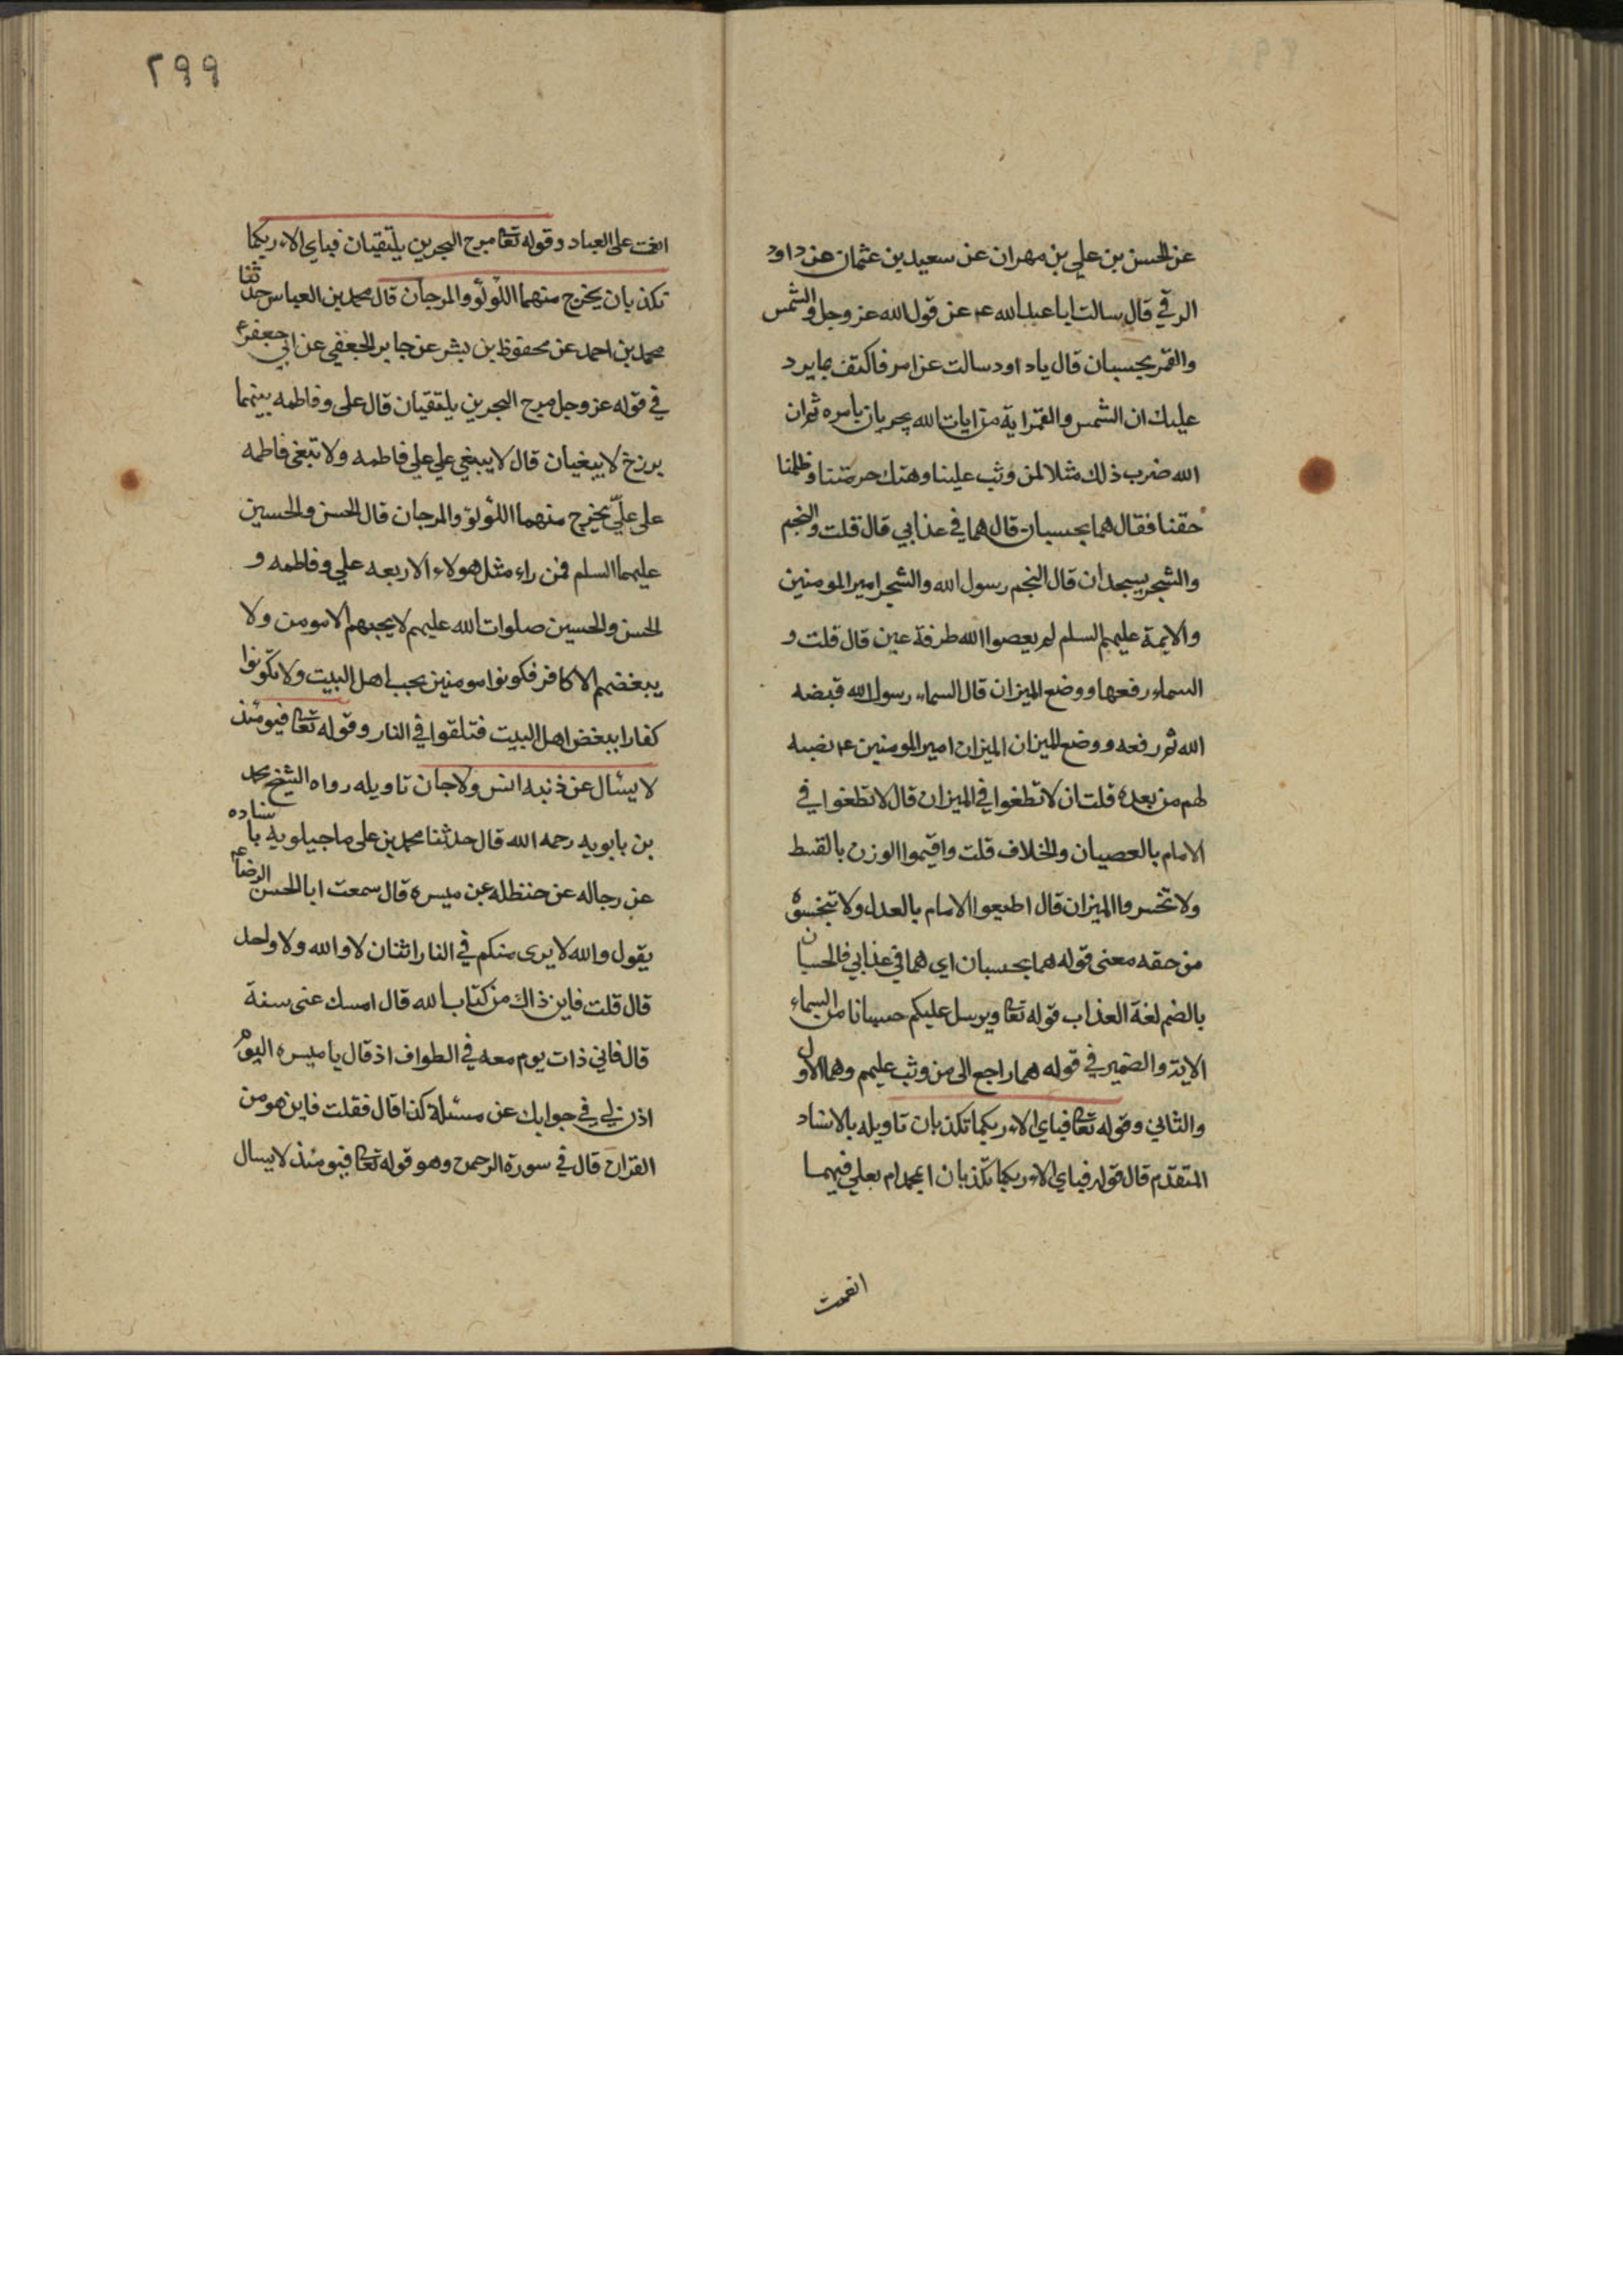 عن الحسن بن علي بن مهران عن سعيد بن عثمان عن داود
الرقي قال سالت ابا عبد الله ع عن قول الله عز وجل والشمس
والقمر بحسبان قال ياداود سالت عن امر فاكتف بما يرد
عليك ان الشمس والقمر اية من ايات الله يجريان بامره ثم ان
الله ضرب ذلك مثلا لمن وثب علينا وهتك حرمتنا وظلمنا
حقنا فقال هما بحسبان قال هما في عذابي قال قلت والنجم
والشجر يسجدان قال النجم رسول الله والشجر امير المومنين
والايمة عليهم السلم لم يعصوا الله طرفة عين قال قلت و
السماء رفعها ووضع الميزان قال السماء رسول الله قبضه
الله ثم رفعه ووضع الميزان الميزان امير المومنين ع نصبه
لهم من بعده قلت ان لا تطغوا في الميزان قال لا تطغوا في
الامام بالعصيان والخلاف قلت واقيموا الوزن بالقسط
ولا تخسروا الميزان قال اطيعوا الامام بالعدل ولا تبخسوه
من حقه معنى قوله هما بحسبان اي هما في عذابي فالحسبان
بالضم لغة العذاب قوله تعا ويرسل عليكم حسبانا من السماء
الاية والضمير في قوله هما راجع الى من وثب عليهم وهما الاول
والثاني وقوله تعا فباي الاء ربكما تكذبان تاويله بالاسناد
المتقدم قال قوله فباي الاء ربكما تكذبان ابمحمد ام بعلي فبهما
انعمت
٢٩٩
انعمت على العباد وقوله تعا مرج البحرين يلتقيان فباي الاء ربكما
تكذبان يخرج منهما اللؤلؤ والمرجان قال محمد بن العباس حدثنا
محمد بن احمد عن محفوظ بن بشر عن جابر الجعفي عن ابي جعفر ع
في قوله عز وجل مرج البحرين يلتقيان قال على وفاطمه بينهما
برزخ لا يبغيان قال لا يبغي علي على فاطمه ولا تبغى فاطمه
على عليّ يخرج منهما اللؤلؤ والمرجان قال الحسن والحسين
عليهما السلم فمن راء مثل هولاء الاربعه علي وفاطمه و
الحسن والحسين صلوات الله عليهم لا يحبهم الا مومن ولا
يبغضهم الا كافر فكونوا مومنين بحب اهل البيت ولا تكونوا
كفارا ببغض اهل البيت فتلقوا في النار وقوله تعا فيومئذ
لا يسئال عن ذنبه انس ولا جان تاويله رواه الشيخ محمد
بن بابويه رحمه الله قال حدثنا محمد بن على ماجيلويه باسناده
عن رجاله عن حنظله عن ميسره قال سمعت ابا الحسن الرضا ع
يقول والله لا يرى منكم في النار اثنان لا والله ولا واحد
قال قلت فاين ذاك من كتاب الله قال امسك عنى سنة
قال فاني ذات يوم معه في الطواف اذ قال يا ميسره اليوم
اذن لي في جوابك عن مسئلة كذا قال فقلت فاين هو من
القران قال في سورة الرحمن وهو قوله تعا فيومئذ لا يسال